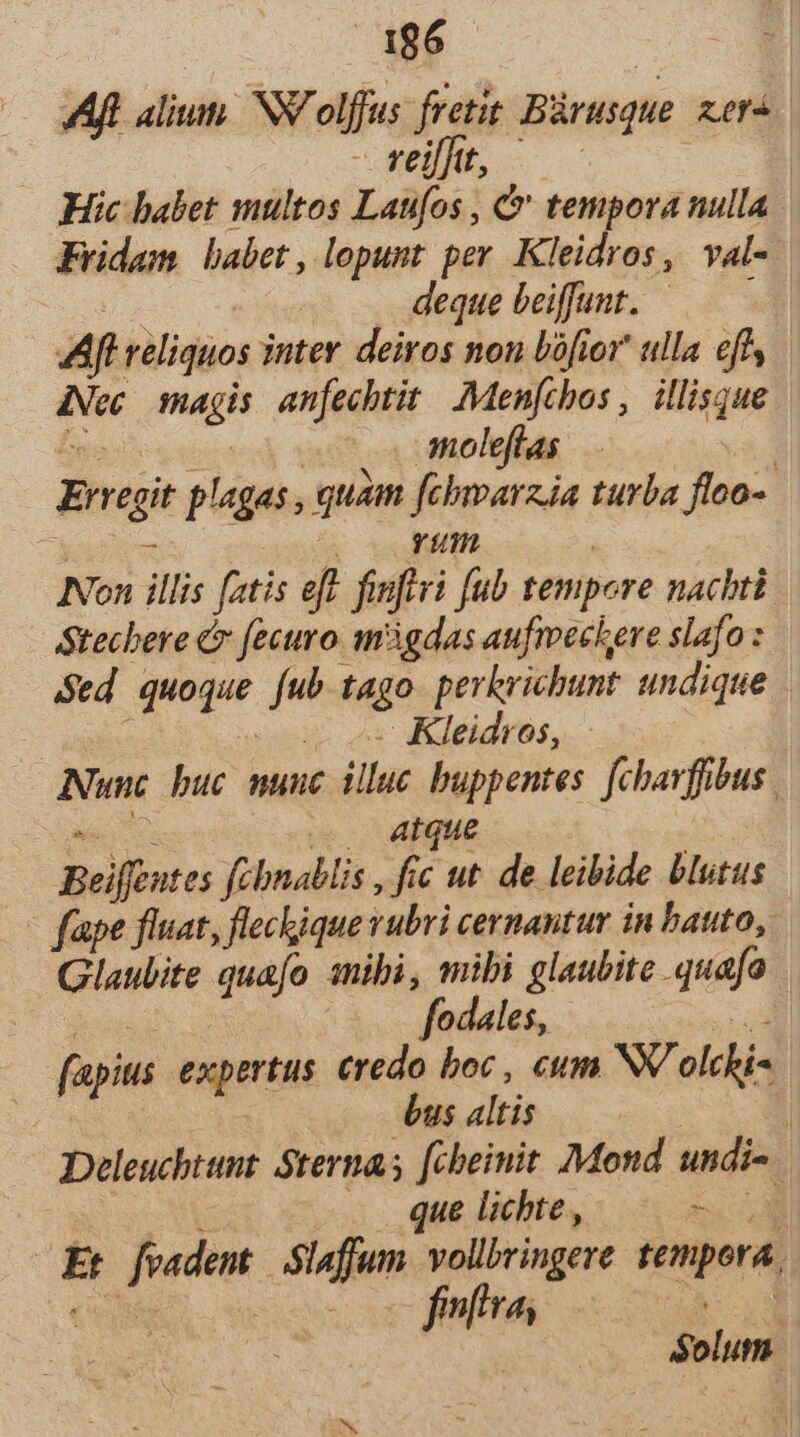 186
Aſt alium Wolffus fretit Bärusque zer-
reiſſit,
Hic habet multos Lauſos, & tempora nulla
Fridam habet, lopunt per Kleidros, val-
deque beiſſunt.
Aſt reliquos inter deiros non böſior ulla eſt,
Nec magis anfechtit Menſchos, illisque
moleſtas
Erregit plagas, quàm ſchwarzia turba floo-
rum
Non illis ſatis eſt finſtri ſub tempore nachti
Stechere & ſecuro mägdas aufweckere slafo:
Sed quoque ſub tago perkrichunt undique
Kleidros,
Nunc huc nunc illuc huppentes ſcharffibus
atque
Beiſſentes ſchnablis, ſic ut de leibide blutus
ſæpe fluat, fleckique rubri cernantur in hauto,
Glaubite quæſo mihi, mihi glaubite quæſo
ſodales,
ſæpius expertus credo hoc, cum Wolcki-
bus altis
Deleuchtunt Sternæ; ſcheinit Mond undi-
que lichte,
Et ſvadent Slaffum vollbringere tempora
finſtra,
Solum